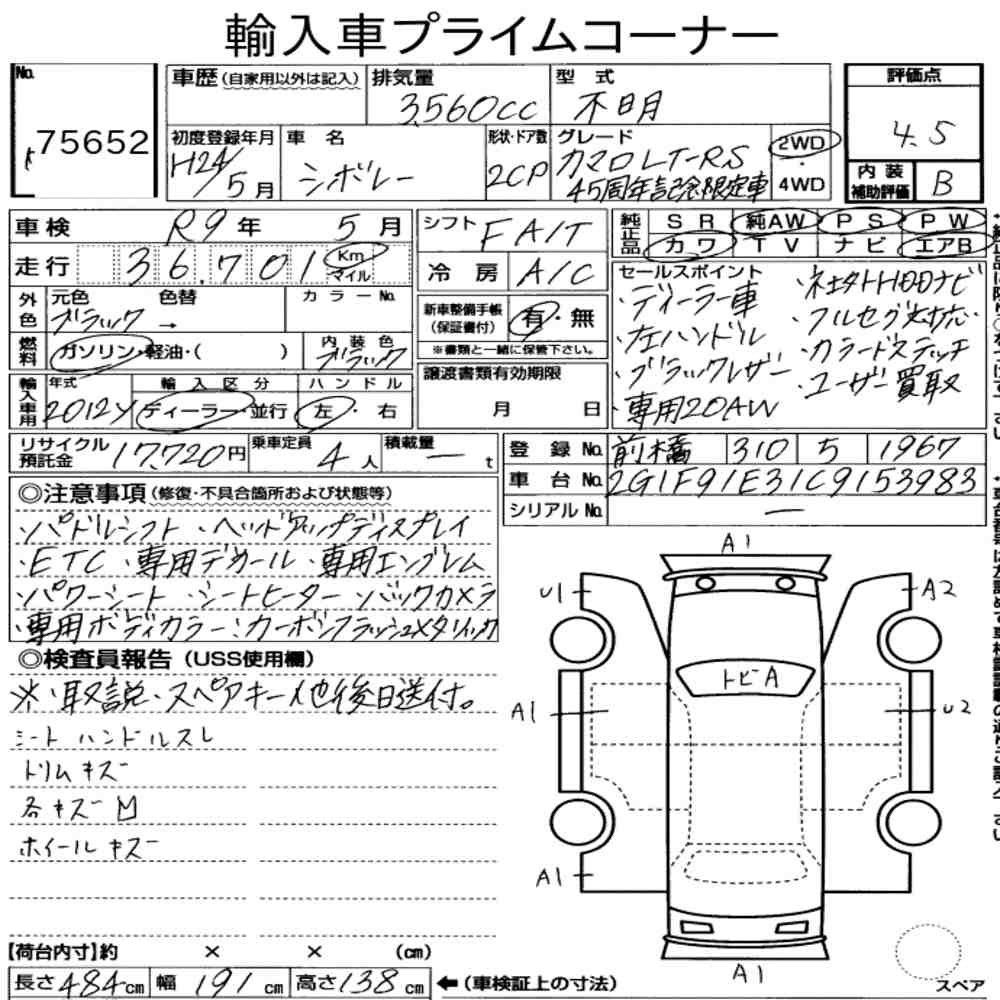 輸入車プライムコーナー
No. 75652
車歴(自家用以外は記入)
排気量 3,560cc
型式 不明
評価点 4.5
初度登録年月 H24/5月
車名 シボレー
形状・ドア数 2CP
グレード カマロLT-RS
45周年記念限定車
2WD・4WD
内装補助評価 B
車検 R9年 5月
走行 36,701 Km マイル
シフト FAIT
冷房 A/C
純正品 SR 純AW PS PW
カワ TV ナビ エアB
外色 元色 ブラック → 色替
カラーNo.
燃料 ガソリン・軽油・( )
内装色 ブラック
新車整備手帳(保証書付) 有・無
※書類と一緒に保管下さい。
セールスポイント
・ディーラー車
・左ハンドル
・ブラックレザー
・専用20AW
・ネセタトHDDナビ
・フルセグ対応
・カラードステッチ
・ユーザー買取
輸入車用 年式 2012y
輸入区分 ディーラー・並行
ハンドル 左・右
譲渡書類有効期限
月 日
リサイクル預託金 17,720円
乗車定員 4人
積載量 ー t
登録No. 前橋 310 5 1967
車台No. 2G1F91E31C9153983
シリアルNo. ー
◎注意事項(修復・不具合箇所および状態等)
・パドルシフト ・ヘッドアップディスプレイ
・ETC ・専用デカール ・専用エンブレム
・パワーシート ・シートヒーター ・バックカメラ
・専用ボディカラー:カーボンフラッシュメタリック
◎検査員報告(USS使用欄)
※・取説・スペアキー他後日送付。
シート ハンドルスレ
トリムキズ
各キズ M
ホイールキズ
A1
U1
A2
トビA
A1
U2
A1
A1
スペア
【荷台内寸】約 × × (cm)
長さ484cm 幅191cm 高さ138cm ←(車検証上の寸法)